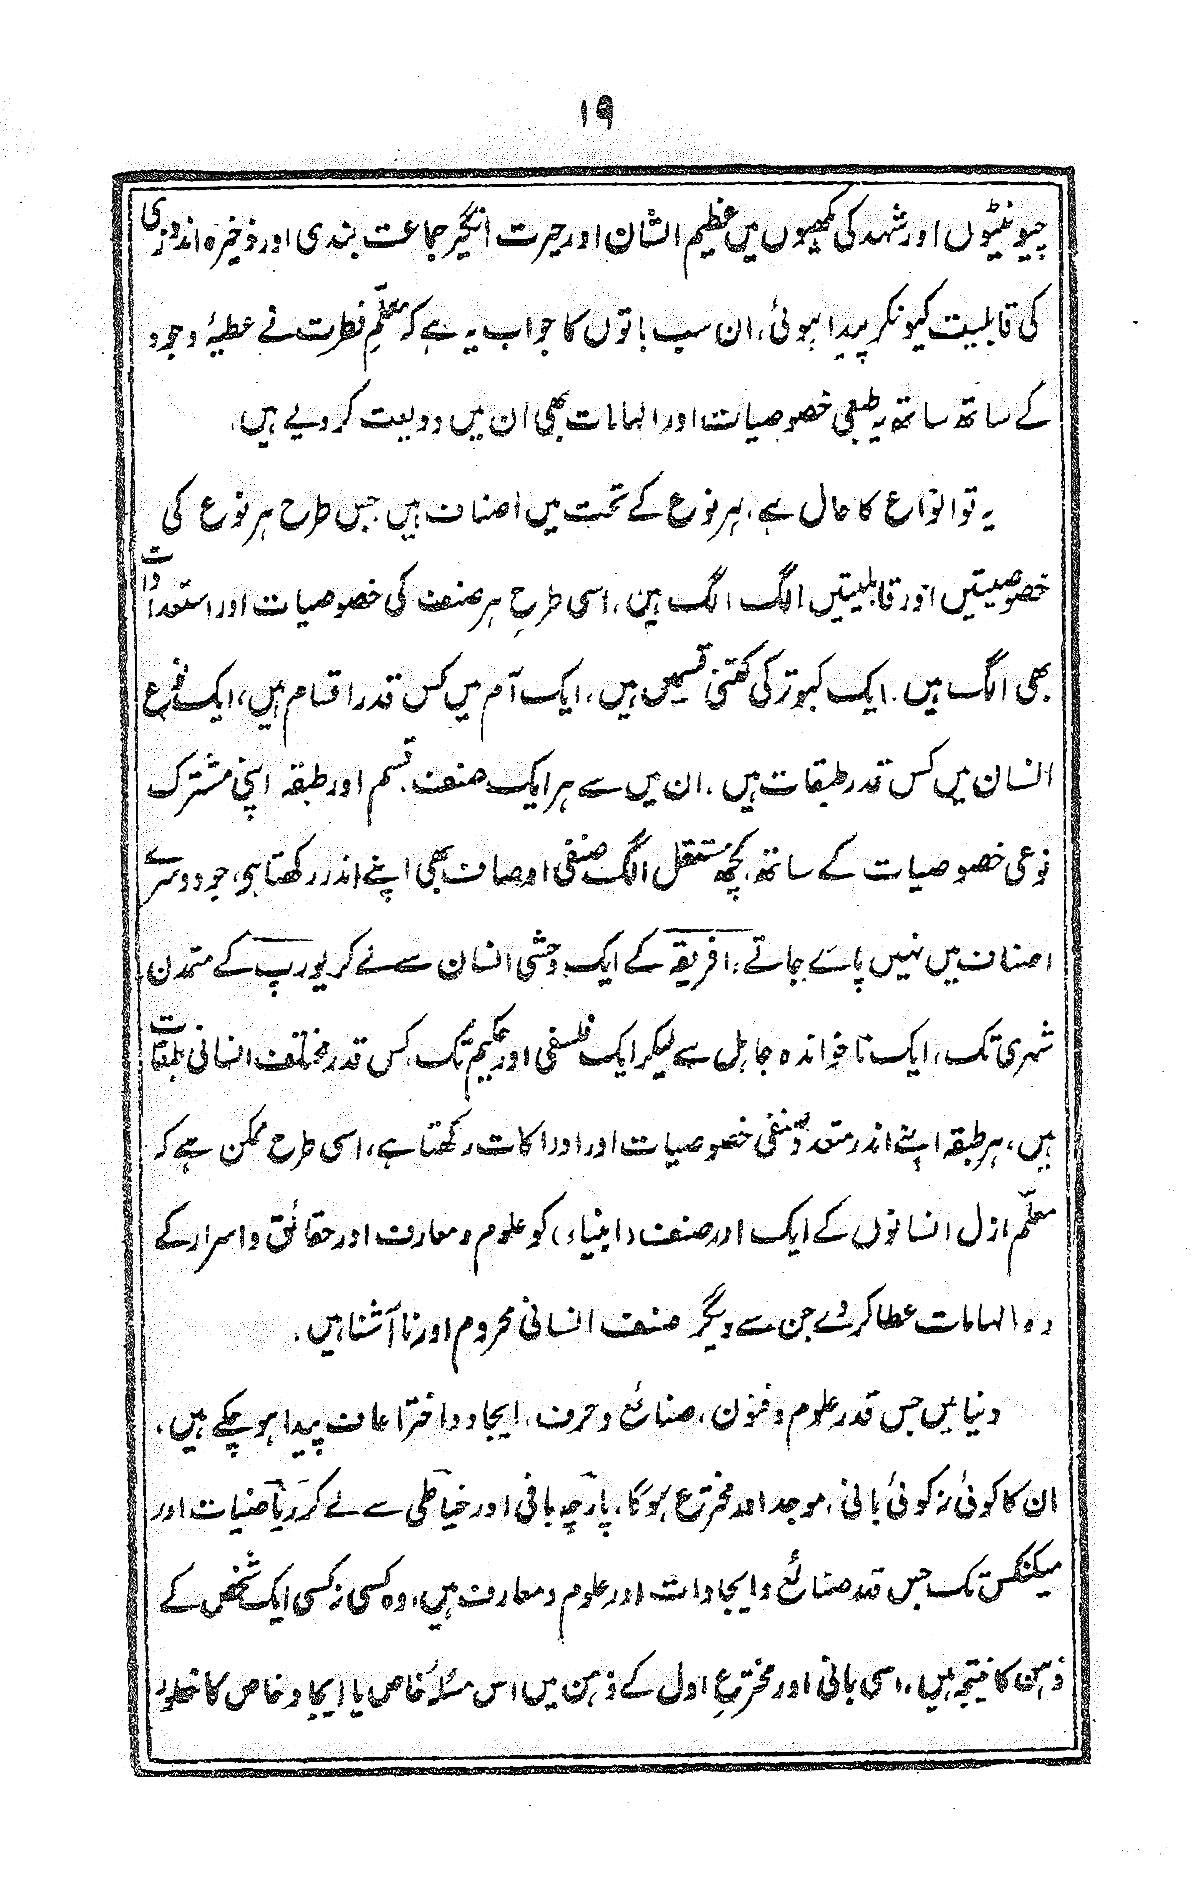 ۱۹
چیونٹیوں اور شہد کی مکھیوں میں عظیم الشان اور حیرت انگیز جماعت بندی اور ذخیرہ اندوزی
کی قابلیت کیونکر پیدا ہوئی، ان سب باتوں کا جواب یہ ہے کہ معلّمِ فطرت نے عطیۂ وجود
کے ساتھ ساتھ یہ طبعی خصوصیات اور الہامات بھی ان میں ودیعت کردیے ہیں،
یہ تو انواع کا حال ہے، ہر نوع کے تحت میں اصناف ہیں جس طرح ہر نوع کی
خصوصیتیں اور قابلیتیں الگ الگ ہیں، اسی طرح ہر صنف کی خصوصیات اور استعدادات
بھی الگ ہیں۔ ایک کبوتر کی کتنی قسمیں ہیں، ایک آم میں کس قدر اقسام ہیں، ایک نوع
انسان میں کس قدر طبقات ہیں۔ ان میں سے ہر ایک صنف، قسم اور طبقہ اپنی مشترک
نوعی خصوصیات کے ساتھ، کچھ مستقل الگ صنفی اوصاف بھی اپنے اندر رکھتا ہی، جو دوسرے
اصناف میں نہیں پاے جاتے، افریقہ کے ایک وحشی انسان سے لے کر یورپ کے متمدن
شہری تک، ایک ناخواندہ جاہل سے لیکر ایک فلسفی اور حکیم تک، کس قدر مختلف انسانی طبقات
ہیں، ہر طبقہ اپنے اندر متعدد صنفی خصوصیات اور ادراکات رکھتا ہے، اسی طرح ممکن ہے کہ
معلّم ازل انسانوں کے ایک اور صنف (انبیاء) کو علوم و معارف اور حقائق و اسرار کے
وہ الہامات عطا کردے جن سے دیگر صنف انسانی محروم اور ناآشنا ہیں۔
دنیا میں جس قدر علوم و فنون، صنائع و حرف، ایجاد و اختراعات پیدا ہوچکے ہیں،
ان کا کوئی نہ کوئی بانی، موجد اور مخترع ہوگا، پارچہ بافی اور خیاطی سے لے کر ریاضیات اور
میکنکس تک جس قدر صنائع و ایجادات اور علوم و معارف ہیں، وہ کسی نہ کسی ایک شخص کے
ذہن کا نتیجہ ہیں، اسی بانی اور مخترعِ اول کے ذہن میں اس مسئلۂ خاص یا ایجاد خاص کا خطور